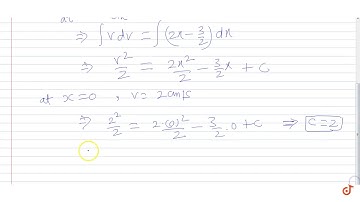 ⇒ ∫vdv = ∫(2x - 3/2)dx
⇒ v²/2 = 2x²/2 - 3/2x + c
at x=0 , v= 2 cm/s
⇒ 2²/2 = 2·(0)²/2 - 3/2·0 + c ⇒ c=2